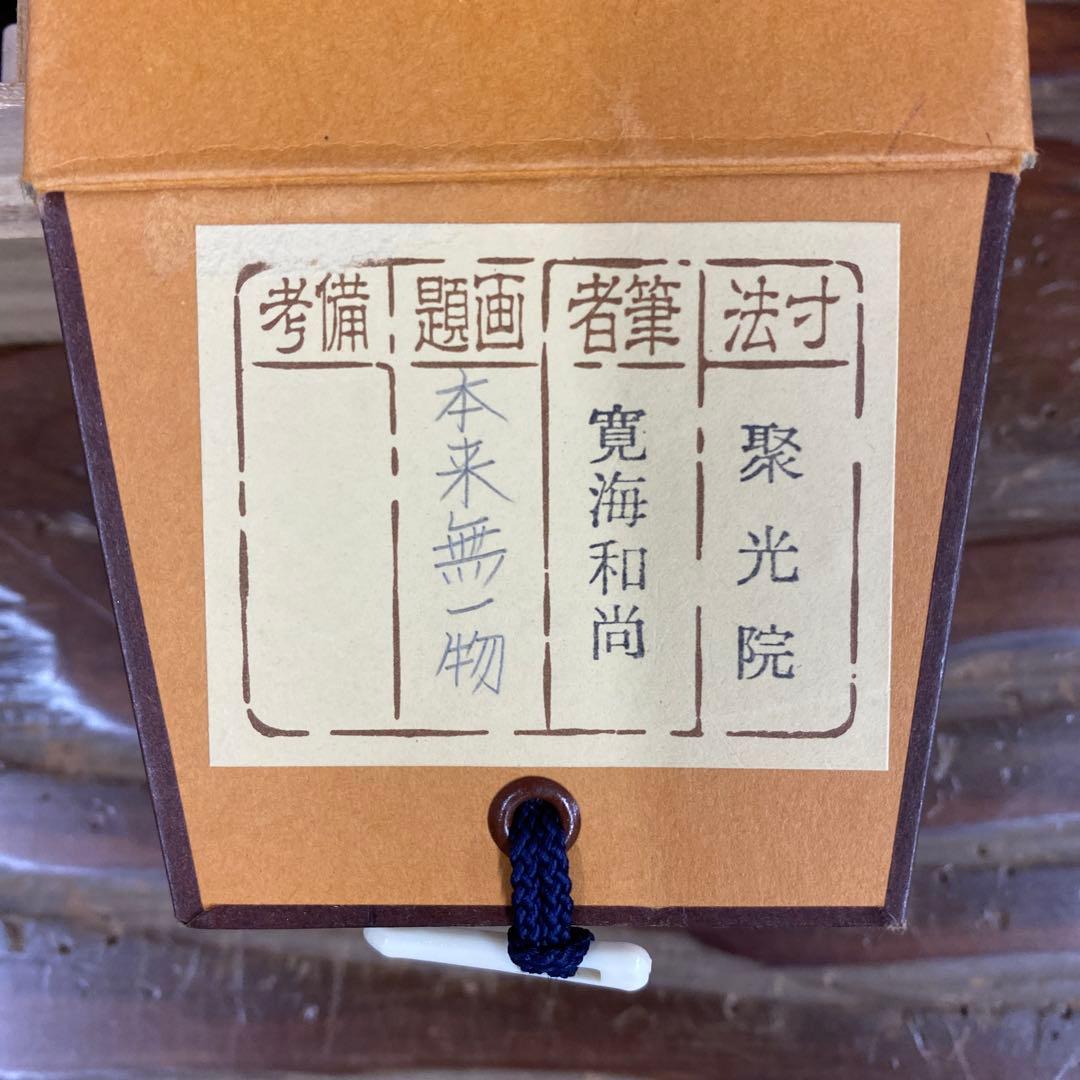 寸法
聚光院
筆者
寛海和尚
画題
本来無一物
備考